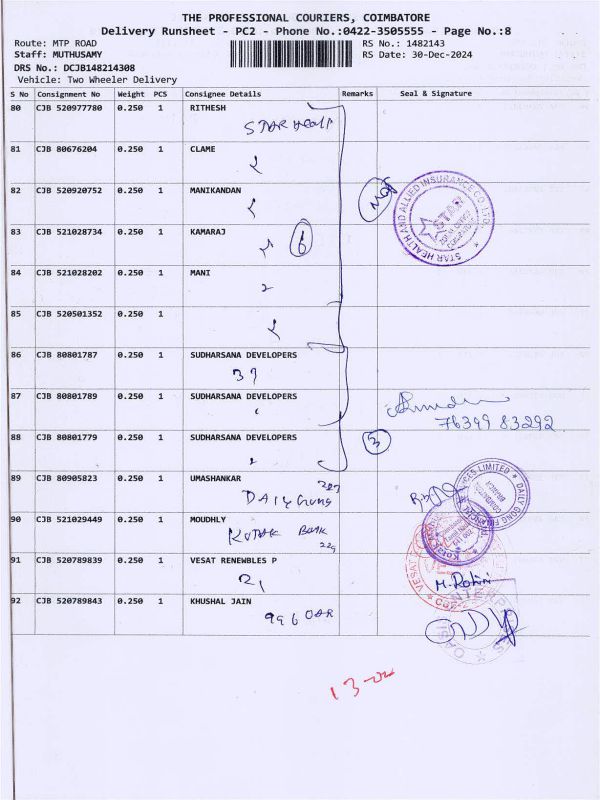 THE PROFESSIONAL COURIERS, COIMBATORE
Delivery Runsheet - PC2 - Phone No.:0422-3505555 - Page No.:8
Route: MTP ROAD RS No.: 1482143
Staff: MUTHUSAMY RS Date: 30-Dec-2024
DRS No.: DCJB148214308
Vehicle: Two Wheeler Delivery
S No Consignment No Weight PCS Consignee Details Remarks Seal & Signature
80 CJB 520977780 0.250 1 RITHESH
STAR Health
81 CJB 80676204 0.250 1 CLAME
82 CJB 520920752 0.250 1 MANIKANDAN
STAR HEALTH AND ALLIED INSURANCE CO LTD
STAR
83 CJB 521028734 0.250 1 KAMARAJ
6
84 CJB 521028202 0.250 1 MANI
85 CJB 520501352 0.250 1
86 CJB 80801787 0.250 1 SUDHARSANA DEVELOPERS
37
87 CJB 80801789 0.250 1 SUDHARSANA DEVELOPERS
76399 83292
88 CJB 80801779 0.250 1 SUDHARSANA DEVELOPERS
3
89 CJB 80905823 0.250 1 UMASHANKAR
227
DAILY Gong
90 CJB 521029449 0.250 1 MOUDHLY
KOTAK BANK
229
91 CJB 520789839 0.250 1 VESAT RENEWBLES P
M. Rohini
92 CJB 520789843 0.250 1 KHUSHAL JAIN
996 OAR